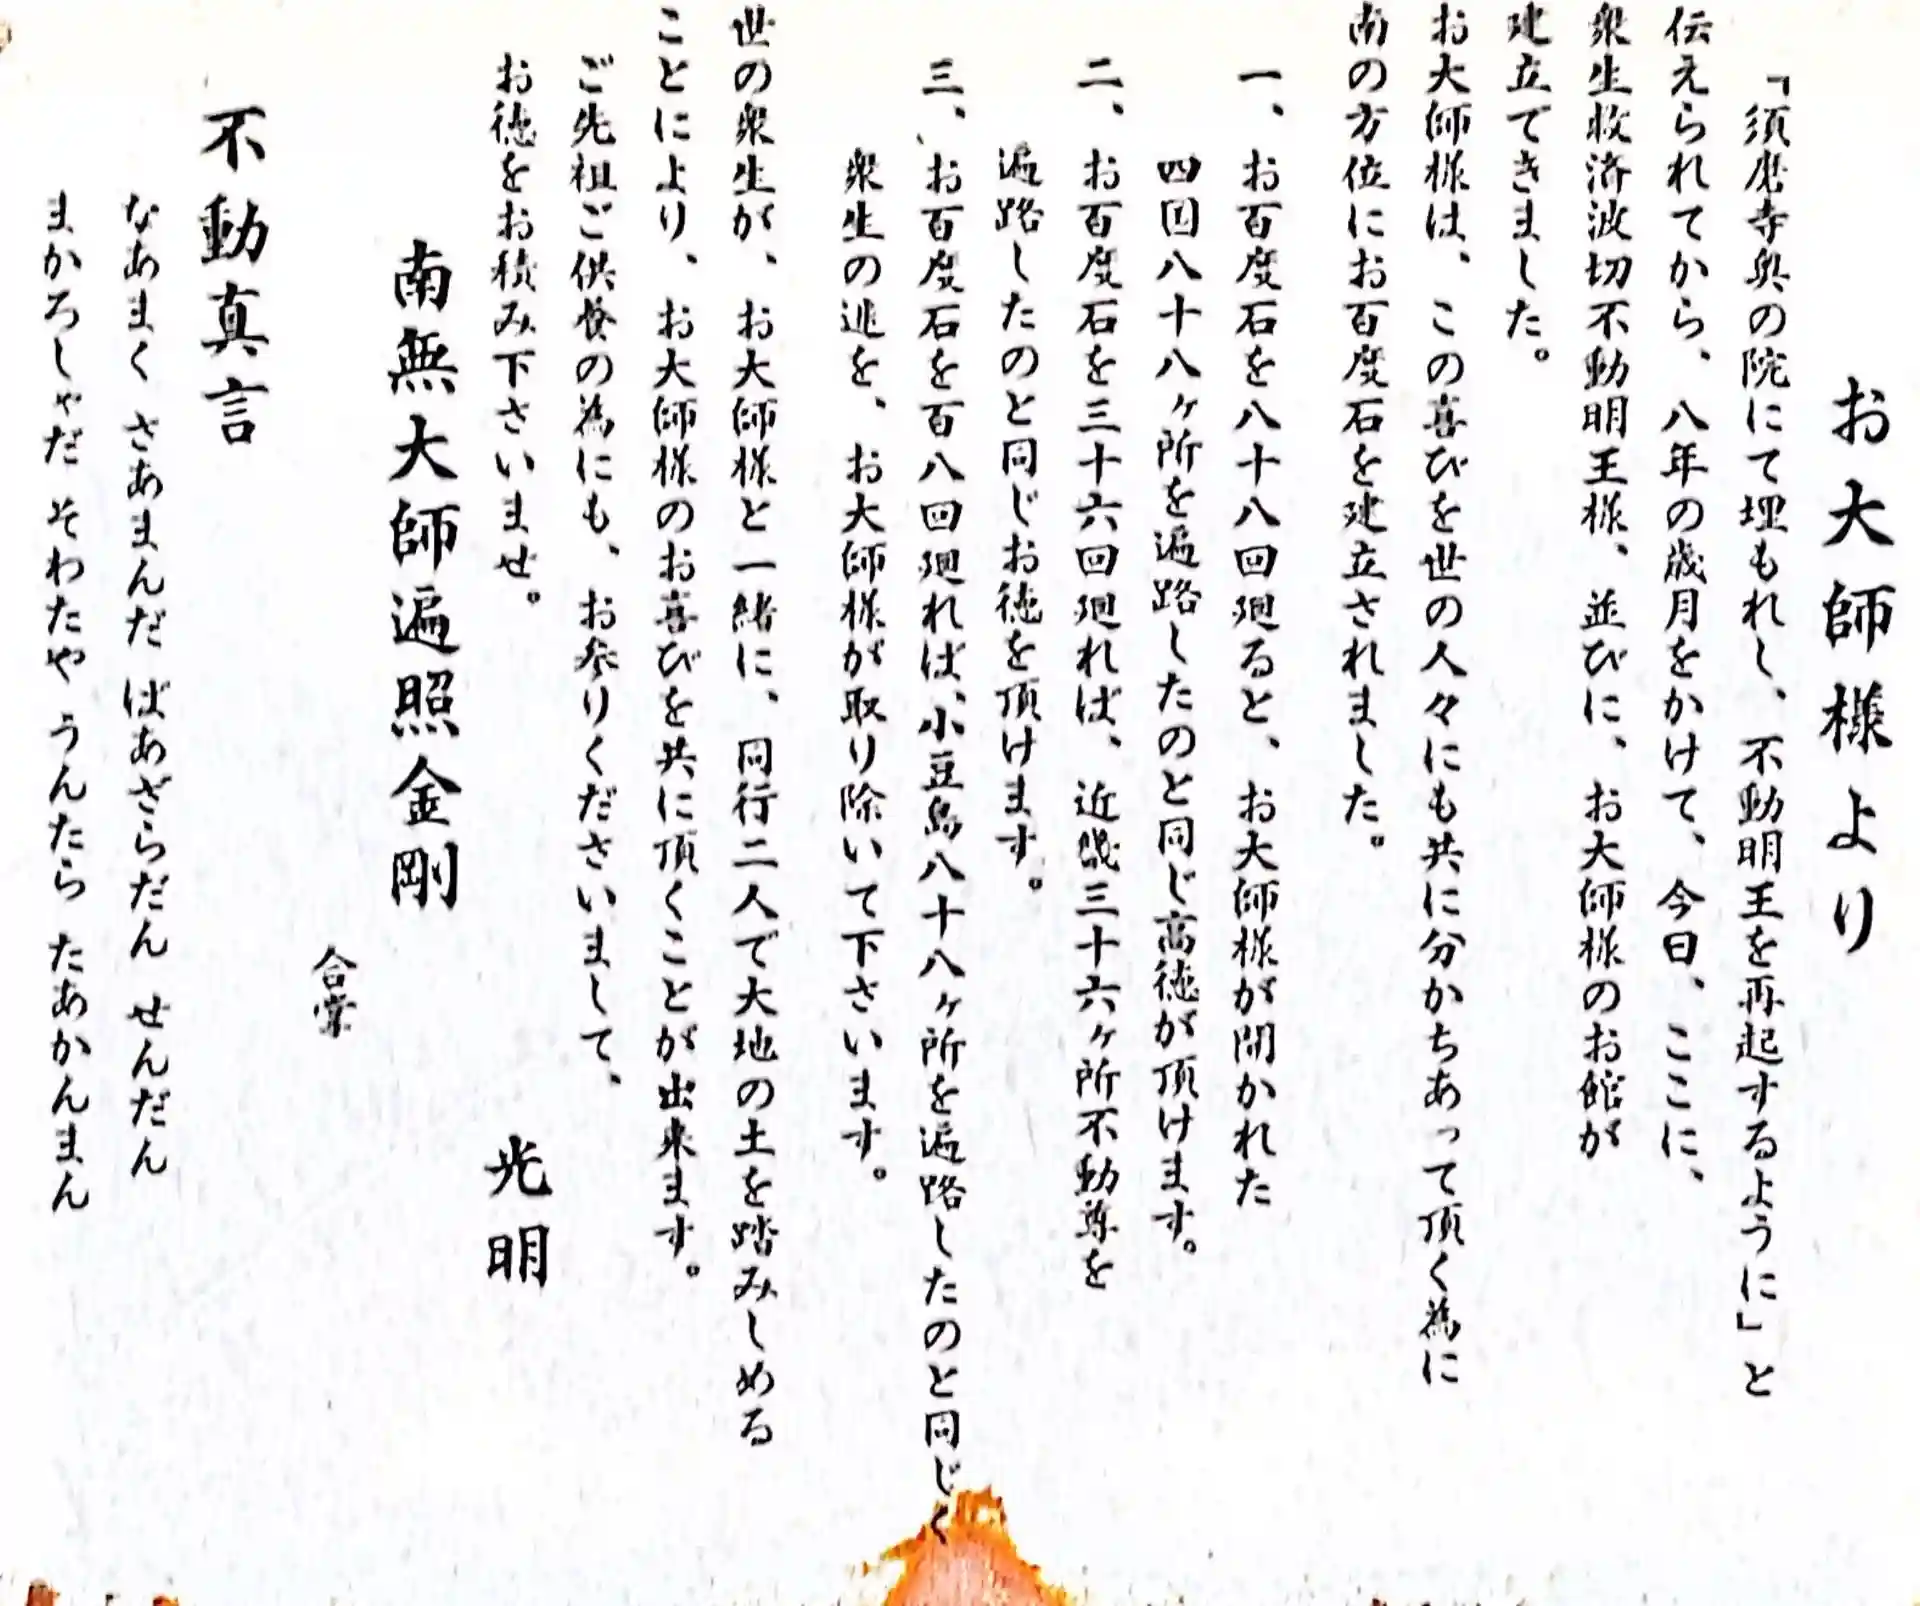 お大師様より
「須磨寺奥の院にて埋もれし、不動明王を再起するように」と
伝えられてから、八年の歳月をかけて、今日、ここに、
衆生救済波切不動明王様、並びに、お大師様のお館が
建立てきました。
お大師様は、この喜びを世の人々にも共に分かちあって頂く為に
南の方位にお百度石を建立されました。
一、お百度石を八十八回廻ると、お大師様が開かれた
四国八十八ヶ所を遍路したのと同じ高徳が頂けます。
二、お百度石を三十六回廻れば、近畿三十六ヶ所不動尊を
遍路したのと同じお徳を頂けます。
三、お百度石を百八回廻れば、小豆島八十八ヶ所を遍路したのと同じく
衆生の迷を、お大師様が取り除いて下さいます。
世の衆生が、お大師様と一緒に、同行二人で大地の土を踏みしめる
ことにより、お大師様のお喜びを共に頂くことが出来ます。
ご先祖ご供養の為にも、お参りくださいまして、
お徳をお積み下さいませ。
光明
南無大師遍照金剛
合掌
不動真言
なあまく さあまんだ ばあざらだん せんだん
まかろしゃだ そわたや うんたら たあかんまん